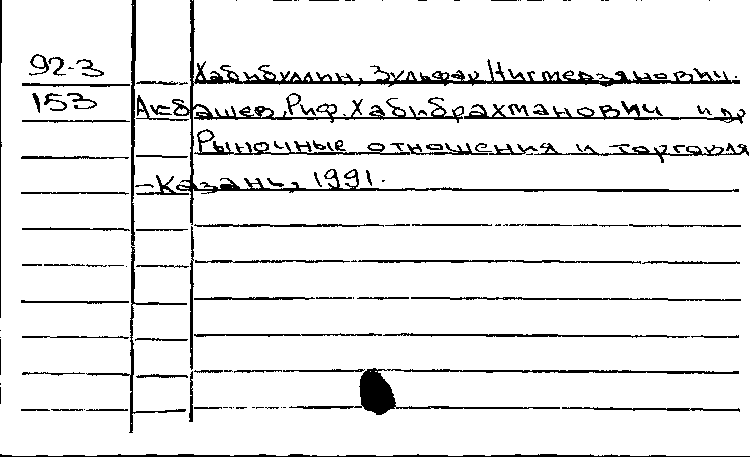 92-3 Хабибуллин, Зульфар Нигмедзянович.
153 Акбашев, Риф. Хабибрахманович и др
Рыночные отношения и торговля
-Казань, 1991.